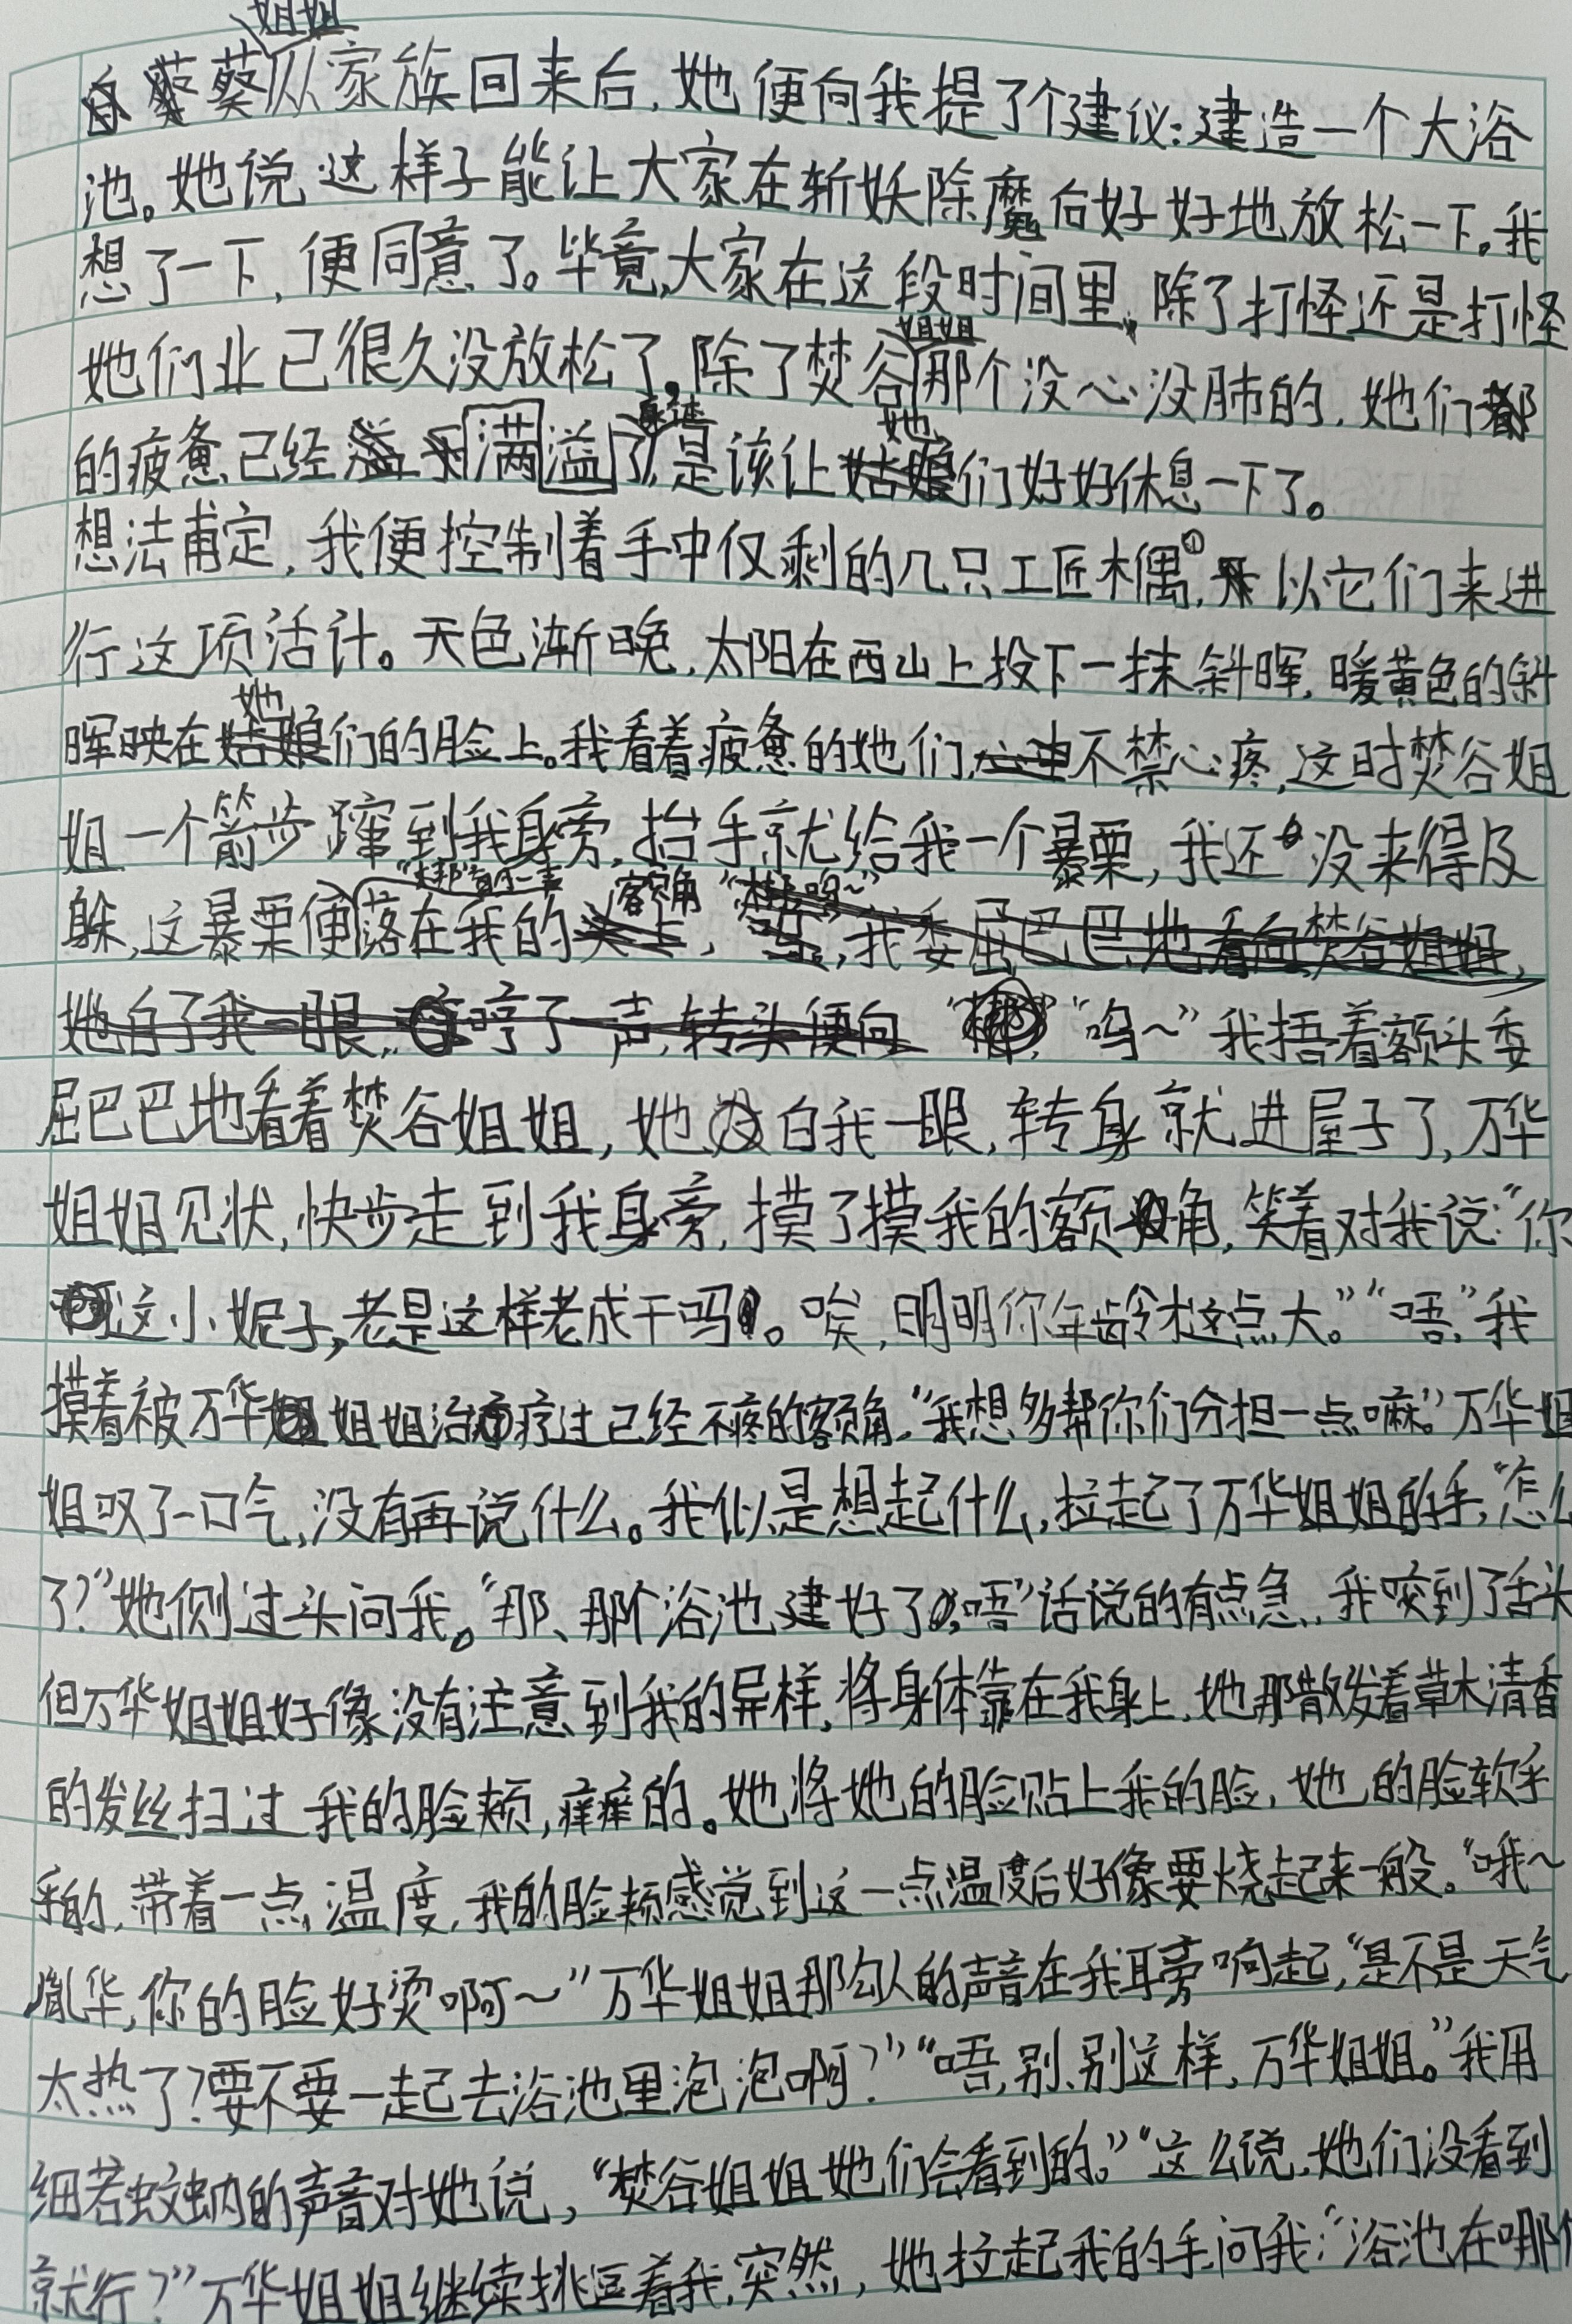 蔡姐姐从家族回来后,她便向我提了个建议:建造一个大浴
池。她说这样子能让大家在斩妖除魔后好好地放松一下。我
想了一下,便同意了。毕竟,大家在这段时间里,除了打怪还是打怪
她们业已很久没放松了。除了焚谷姐姐那个没心没肺的,她们都
的疲惫已经满溢了,是该让她们好好休息一下了。
想法甫定,我便控制着手中仅剩的几只工匠木偶①,以它们来进
行这项活计。天色渐晚,太阳在西山上投下一抹斜晖,暖黄色的斜
晖映在她们的脸上。我看着疲惫的她们,不禁心疼,这时焚谷姐
姐一个箭步蹿到我身旁,抬手就给我一个暴栗,我还没来得及
躲,这暴栗便落在我的额角,
“呜~”我捂着额头委
屈巴巴地看着焚谷姐姐,她白我一眼,转身就进屋子了,万华
姐姐见状,快步走到我身旁,摸了摸我的额角,笑着对我说:“你
这小妮子,老是这样老成干吗。唉,明明你年龄才这点大。”“唔”我
摸着被万华姐姐治疗过已经不疼的额角,“我想多帮你们分担一点嘛。”万华姐
姐叹了一口气,没有再说什么。我似是想起什么,拉起了万华姐姐的手,“怎么
了?”她侧过头问我。“那、那个浴池建好了,唔”话说的有点急,我咬到了舌头
但万华姐姐好像没有注意到我的异样,将身体靠在我身上,她那散发着草木清香
的发丝扫过我的脸颊,痒痒的。她将她的脸贴上我的脸,她的脸软乎
乎的,带着一点温度,我的脸颊感觉到这一点温度后好像要烧起来一般。“哦~
胤华,你的脸好烫啊~”万华姐姐那勾人的声音在我耳旁响起,“是不是天气
太热了?要不要一起去浴池里泡泡啊?”“唔,别、别这样,万华姐姐。”我用
细若蚊蚋的声音对她说,“焚谷姐姐她们会看到的。”“这么说,她们没看到
就行?”万华姐姐继续挑逗着我,突然,她拉起我的手问我:“浴池在哪个